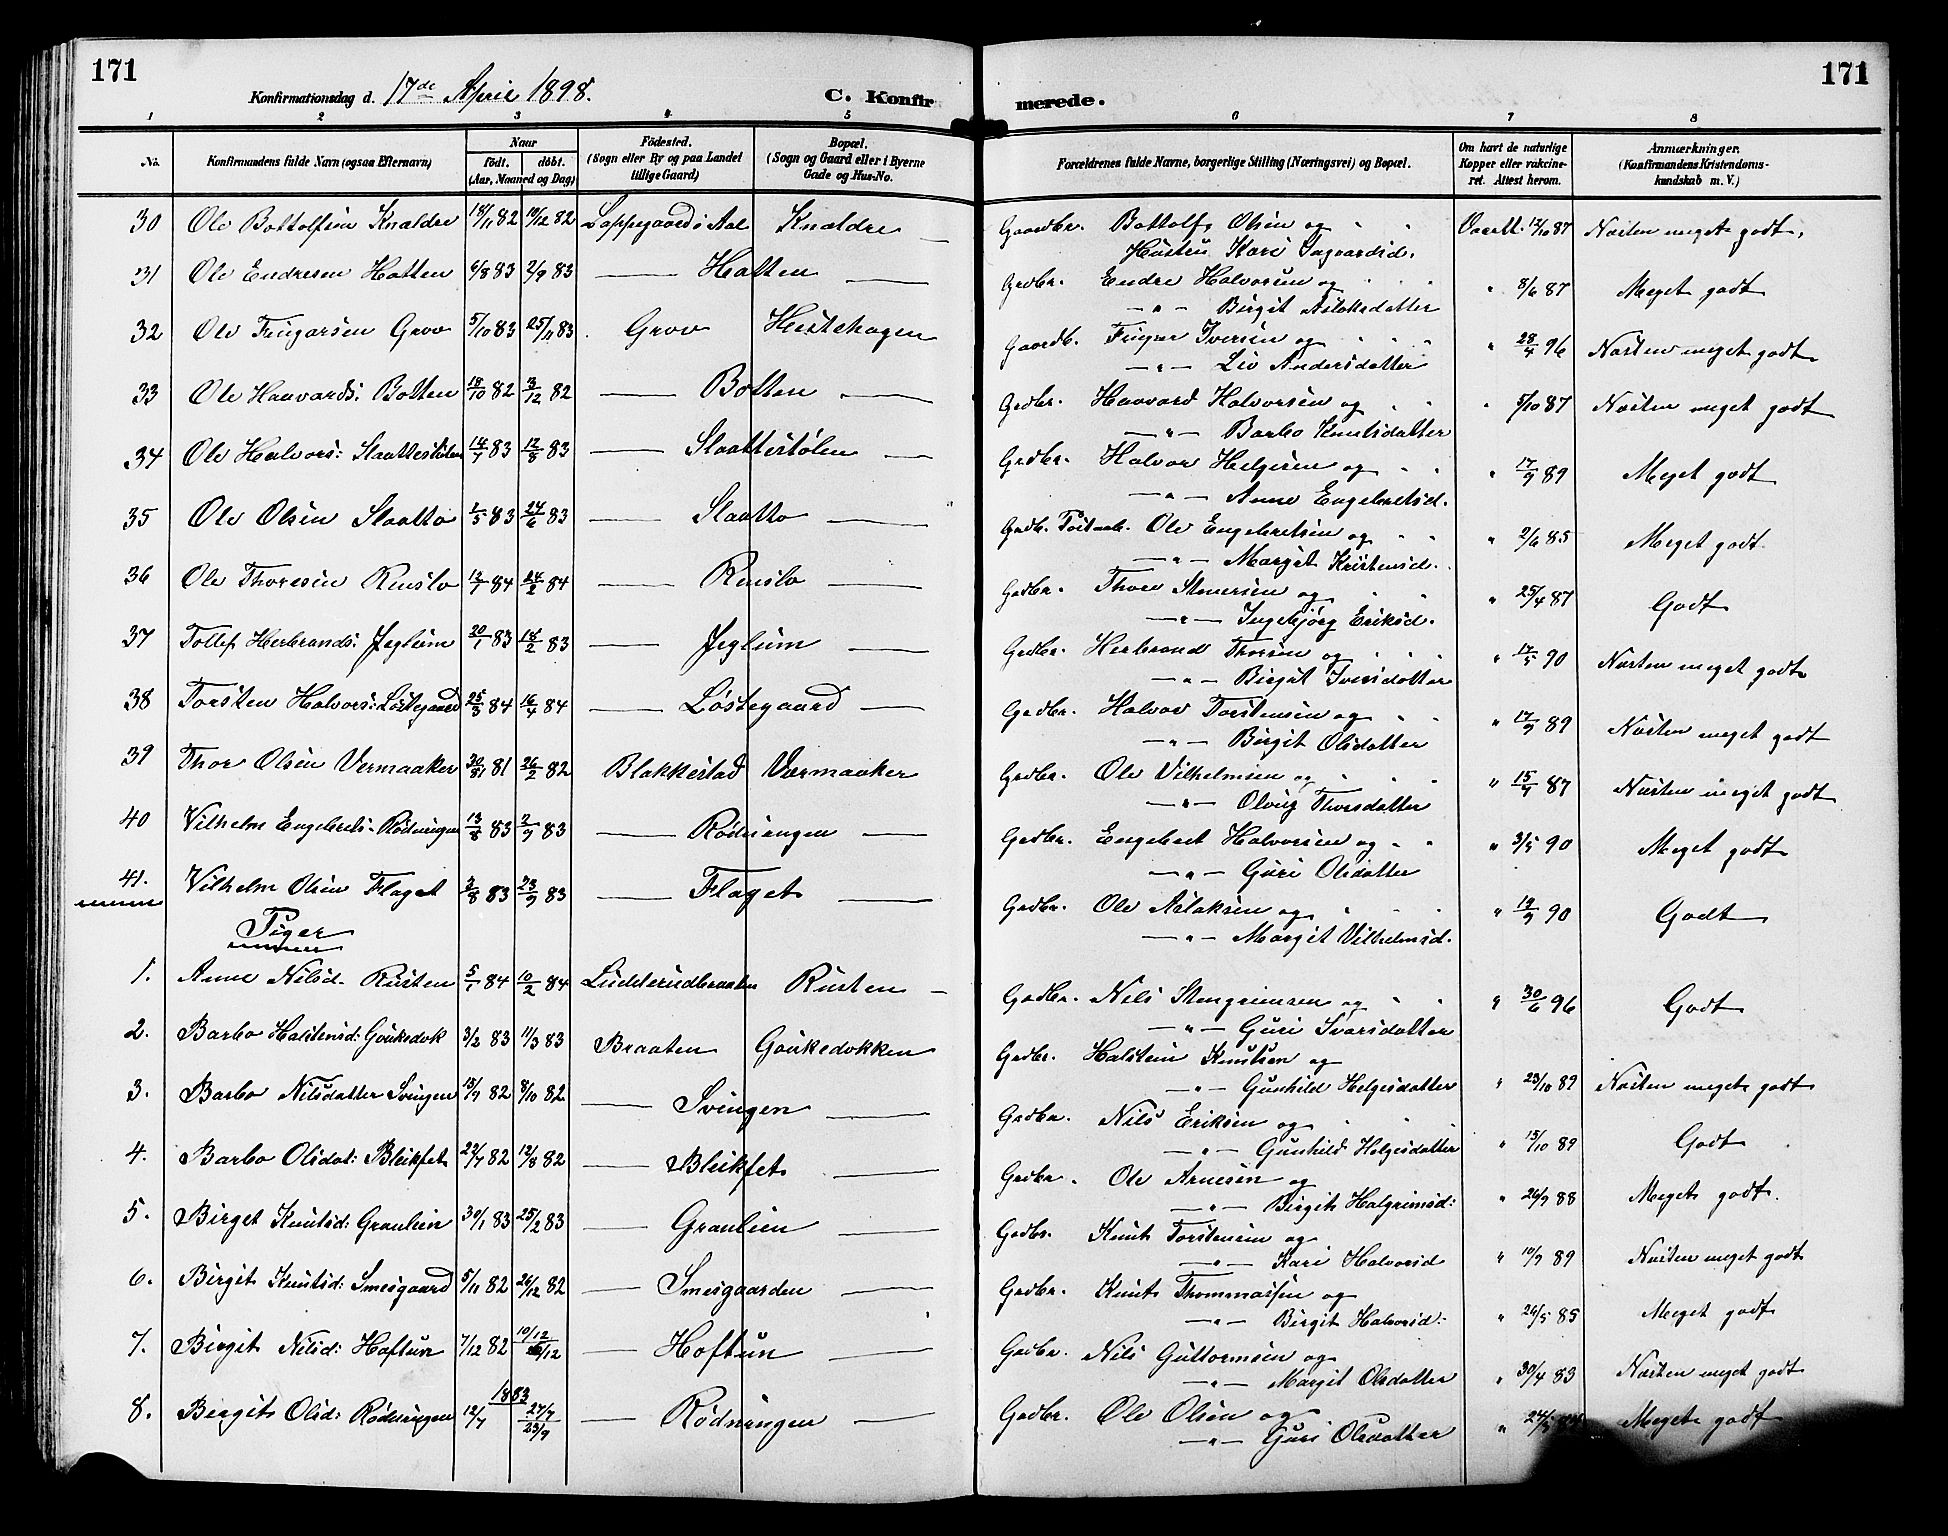 171
Konfirmationsdag d. 17de April 1898.
C. Konfirmerede.
171
1 2 3 4 5 6 7 8
No. Konfirmandens fulde Navn (ogsaa Efternavn) Naar födt. döbt. (Aar, Maaned og Dag) Födested. (Sogn eller By og paa Landet tillige Gaard) Bopæl. (Sogn og Gaard eller i Byerne Gade og Hus-No. Forældrenes fulde Navne, borgerlige Stilling (Næringsvei) og Bopæl. Om havt de naturlige Kopper eller vakcineret. Attest herom. Anmærkninger. (Konfirmandens Kristendomskundskab m. V.)
30 Ole Bottolfsen Knaldre 18/11 82 19/12 82 Loppegaard i Aal Knaldre — Gaardbr. Bottolf Olsen og Vacatt. 12/10 87 Næsten meget godt,
Hustru Kari Sagvardsd.
31 Ole Endresen Hatten 6/8 83 2/9 83 — Hatten — Grdbr. Endre Halvorsen og " 8/6 87 Meget godt
—"— Birgit Aslaksdatter
32 Ole Fingarsen Grov 5/10 83 25/11 83 Grov Hestehagen Gaardb. Fingar Iversen og " 28/4 96 Næsten meget godt
—"— Liv Andersdatter
33 Ole Haavards: Botten 18/10 82 3/12 82 — Botten — Grdbr. Haavard Halvorsen og " 5/10 87 Næsten meget godt
—"— Barbo Knutsdatter
34 Ole Halvors: Slaattestølen 14/7 83 12/8 83 — Slaattestølen — Grdbr. Halvor Helgesen og " 17/9 89 Meget godt
—"— Anne Engebretsd.
35 Ole Olsen Slaatto 2/5 83 24/6 83 — Slaatto — Grdb. Ole Engebretsen og " 2/6 85 Meget godt
—"— Margit Kristensd.
36 Ole Thoresen Renslo 12/1 84 24/2 84 — Renslo — Grdbr. Thore Stenersen og " 25/4 87 Godt
—"— Ingebjörg Eriksd.
37 Tollef Herbrands: Jeglum 20/1 83 18/2 83 — Jeglum — Grdbr. Herbrand Thorsen og " 17/5 90 Næsten meget godt
—"— Birgit Iversdatter
38 Torsten Halvors: Löstegaard 25/3 84 16/4 84 — Løstegaard — Grdbr. Halvor Torstensen og " 17/9 89 Næsten meget godt
—"— Birgit Olsdatter
39 Thor Olsen Vermaaker 81 26/2 82 Blakkestad Værmaaker Grdbr. Ole Vilhelmsen og " 15/9 87 Næsten meget godt
—"— Olvig Thorsdatter
40 Vilhelm Engebrets. Rödningen 13/8 83 2/9 83 — Rødningen — Grdbr. Engebret Halvorsen og " 3/5 90 Meget godt
—"— Guri Olsdatter
41. Vilhelm Olsen Flaget 3/8 83 23/9 83 — Flaget — Grdbr. Ole Aslaksen og " 19/9 90 Godt
—"— Margit Vilhelmsd.
Piger
1. Anne Nilsd. Rusten 5/1 84 10/2 84 Rusten — Grdbr. Nils Stengrimsen og " 30/6 96 Godt
—"— Guri Ivarsdatter
2. Barbo Halstensd: Goukedok 3/2 83 11/3 83 Braaten Goukedokken Grdbr. Halstein Knutsen og
—"— Gunhild Helgesdatter " 23/10 89 Næsten meget godt
3. Barbo Nilsdatter Svingen 13/9 82 8/10 82 — Svingen — Grdbr. Nils Eriksen og
—"— Gunhild Helgesdatter " 15/10 89 Godt
4. Barbo Olsdat: Bleikfet 22/7 82 12/8 82 — Bleikfet — Grdbr. Ole Arnesen og
—"— Birgit Halgrimsd: " 26/9 88 Meget godt.
5. Birget Knutsd: Graulien 30/1 83 25/2 83 — Graulien — Grdbr. Knut Torstensen og
—"— Kari Halvorsd " 10/9 89 Næsten meget godt
6. Birgit Knutsd: Smesgaard 5/11 82 26/12 82 — Smesgaarden — Grdbr. Knut Thommassen og
—"— Birgit Halvorsd: " 26/5 85 Meget godt
7. Birgit Nilsd: Hoftun 7/12 82 10/12 26/12 — Hoftun — Grdbr. Nils Guttormsen og
—"— Margit Olsdatter " 30/4 83 Næsten meget godt
1883
8. Birgit Olsd: Rödningen 12/7 27/7 23/9 — Rødningen — Grdbr. Ole Olsen og
—"— Guri Olsdatter " Meget godt